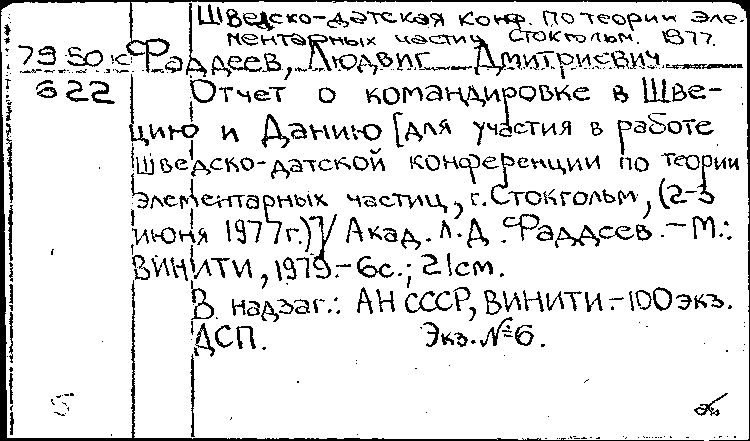 Шведско-датская конф. по теории эле-
ментарных частиц Стокгольм. 1977.
79 50к Фаддеев, Людвиг Дмитриевич
622 Отчет о командировке в Шве-
цию и Данию [для участия в работе
шведско-датской конференции по теории
элементарных частиц, г. Стокгольм, (2-3
июня 1977г.)] / Акад. Л.Д. Фаддеев. - М.:
ВИНИТИ, 1979. - 6с.; 21см.
В надзаг.: АН СССР, ВИНИТИ. - 100 экз.
ДСП. Экз. №6.
5